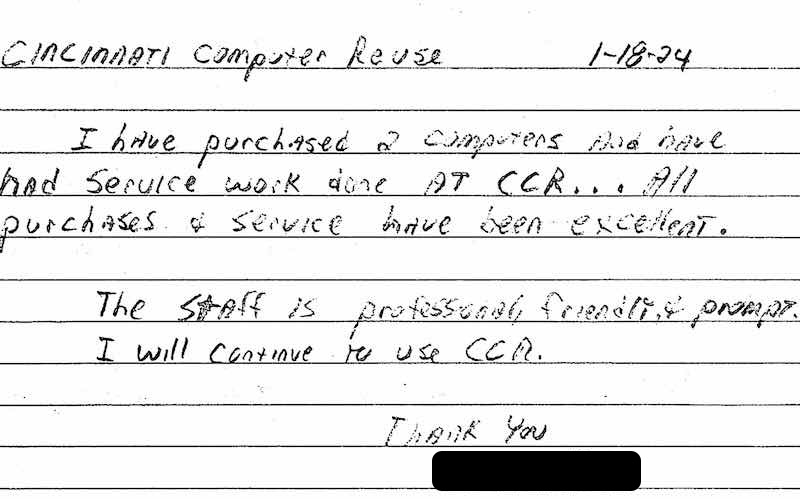 Cincinnati Computer Reuse 1-18-24
I have purchased 2 computers and have
had service work done at CCR... All
purchases & service have been excellent.
The staff is professional, friendly, & prompt.
I will continue to use CCR.
Thank You